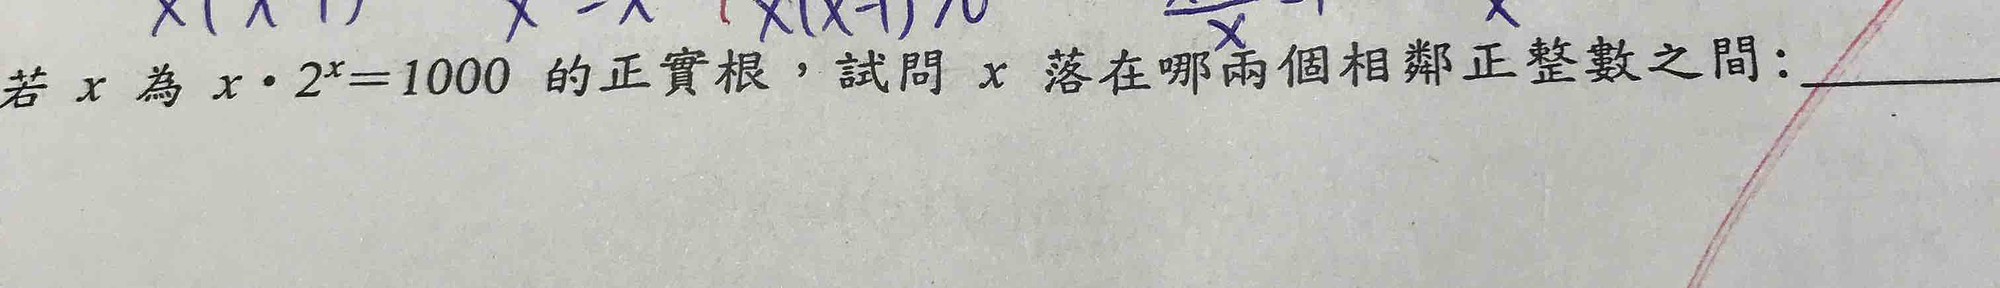 若 x 為 x·2ˣ=1000 的正實根，試問 x 落在哪兩個相鄰正整數之間：